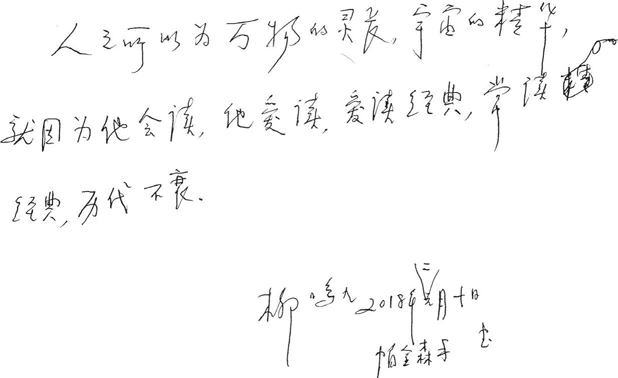 人之所以为万物的灵长,宇宙的精华,
就因为他会读,他爱读,爱读经典,常读
经典,历代不衰.
柳鸣九2018年二月十日
帕金森手书